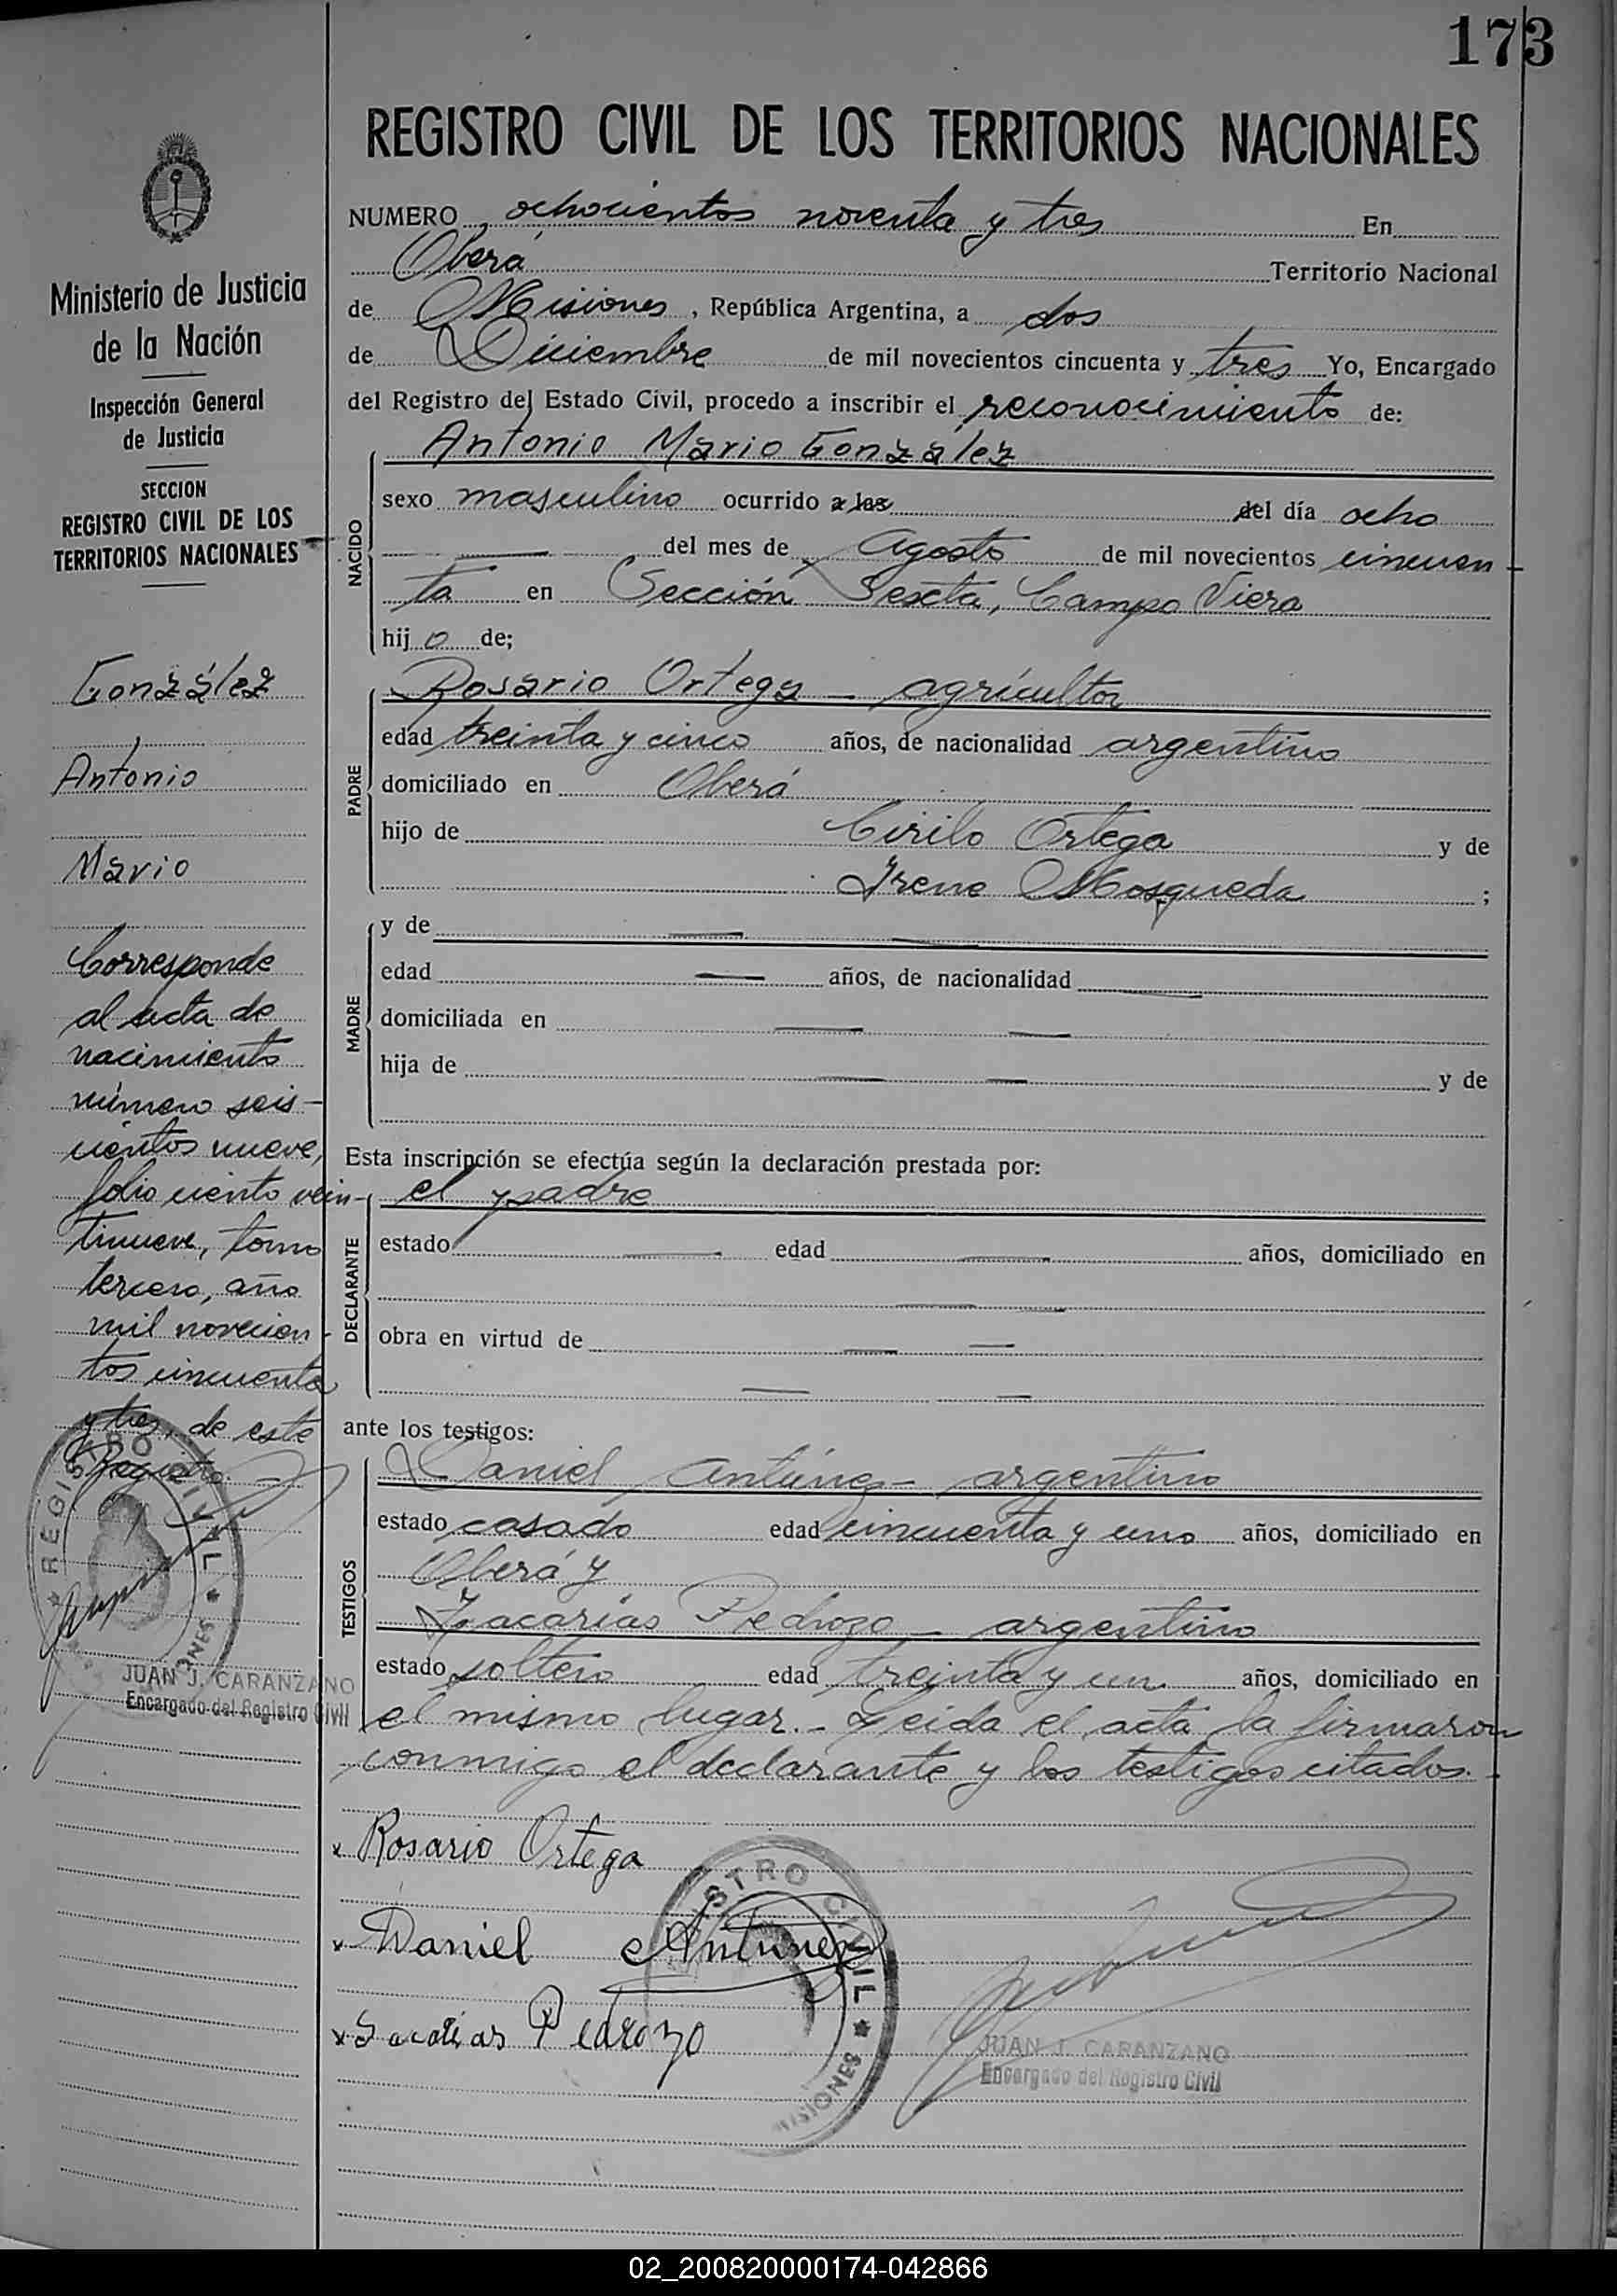 173
REGISTRO CIVIL DE LOS TERRITORIOS NACIONALES
Ministerio de Justicia
de la Nación
Inspección General
de Justicia
SECCION
REGISTRO CIVIL DE LOS
TERRITORIOS NACIONALES
González
Antonio
Mario
Corresponde
al acta de
nacimiento
número seis-
cientos nueve,
folio ciento vein-
tinueve, tomo
tercero, año
mil novecien-
tos cincuenta
y tres, de este
Registro.
REGISTRO CIVIL
JUAN J. CARANZANO
Encargado del Registro Civil
NUMERO ochocientos noventa y tres En
Oberá Territorio Nacional
de Misiones, República Argentina, a dos
de Diciembre de mil novecientos cincuenta y tres Yo, Encargado
del Registro del Estado Civil, procedo a inscribir el reconocimiento de:
Antonio Mario González
NACIDO
sexo masculino ocurrido a las del día ocho
del mes de Agosto de mil novecientos cincuen
ta en Sección Sexta, Campo Viera
hijo de;
PADRE
Rosario Ortega - agricultor
edad treinta y cinco años, de nacionalidad argentino
domiciliado en Oberá
hijo de Cirilo Ortega y de
Irene Mosqueda ;
MADRE
y de
edad años, de nacionalidad
domiciliada en
hija de y de
Esta inscripción se efectúa según la declaración prestada por:
DECLARANTE
el padre
estado edad años, domiciliado en
obra en virtud de
ante los testigos:
TESTIGOS
Daniel Antúnez - argentino
estado casado edad cincuenta y uno años, domiciliado en
Oberá y
Zacarías Pedrozo - argentino
estado soltero edad treinta y un años, domiciliado en
el mismo lugar.- Leida el acta la firmaron
conmigo el declarante y los testigos citados.-
x Rosario Ortega
x Daniel Antunez
x Sacarias Pedrozo
REGISTRO CIVIL * MISIONES
JUAN J. CARANZANO
Encargado del Registro Civil
02_200820000174-042866